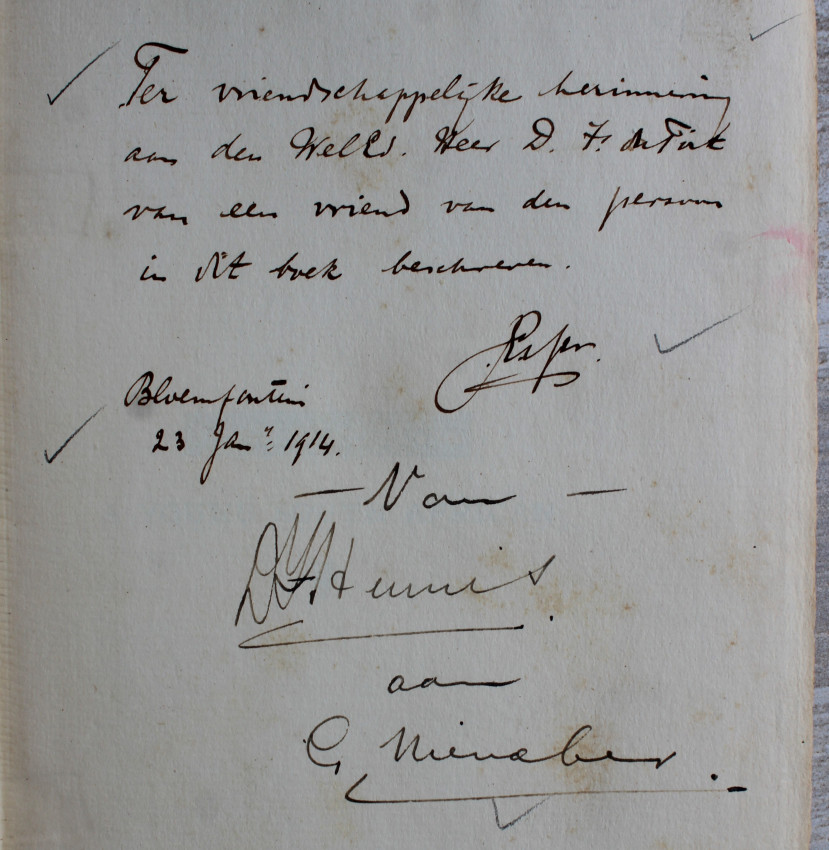 Ter vriendschappelijke herinnering
aan den WelEd. Heer D. F.
van een vriend van den persoon
in dit boek beschreven.
Bloemfontein
23 Jan. 1914.
— Van —
D
aan
G Nienaber